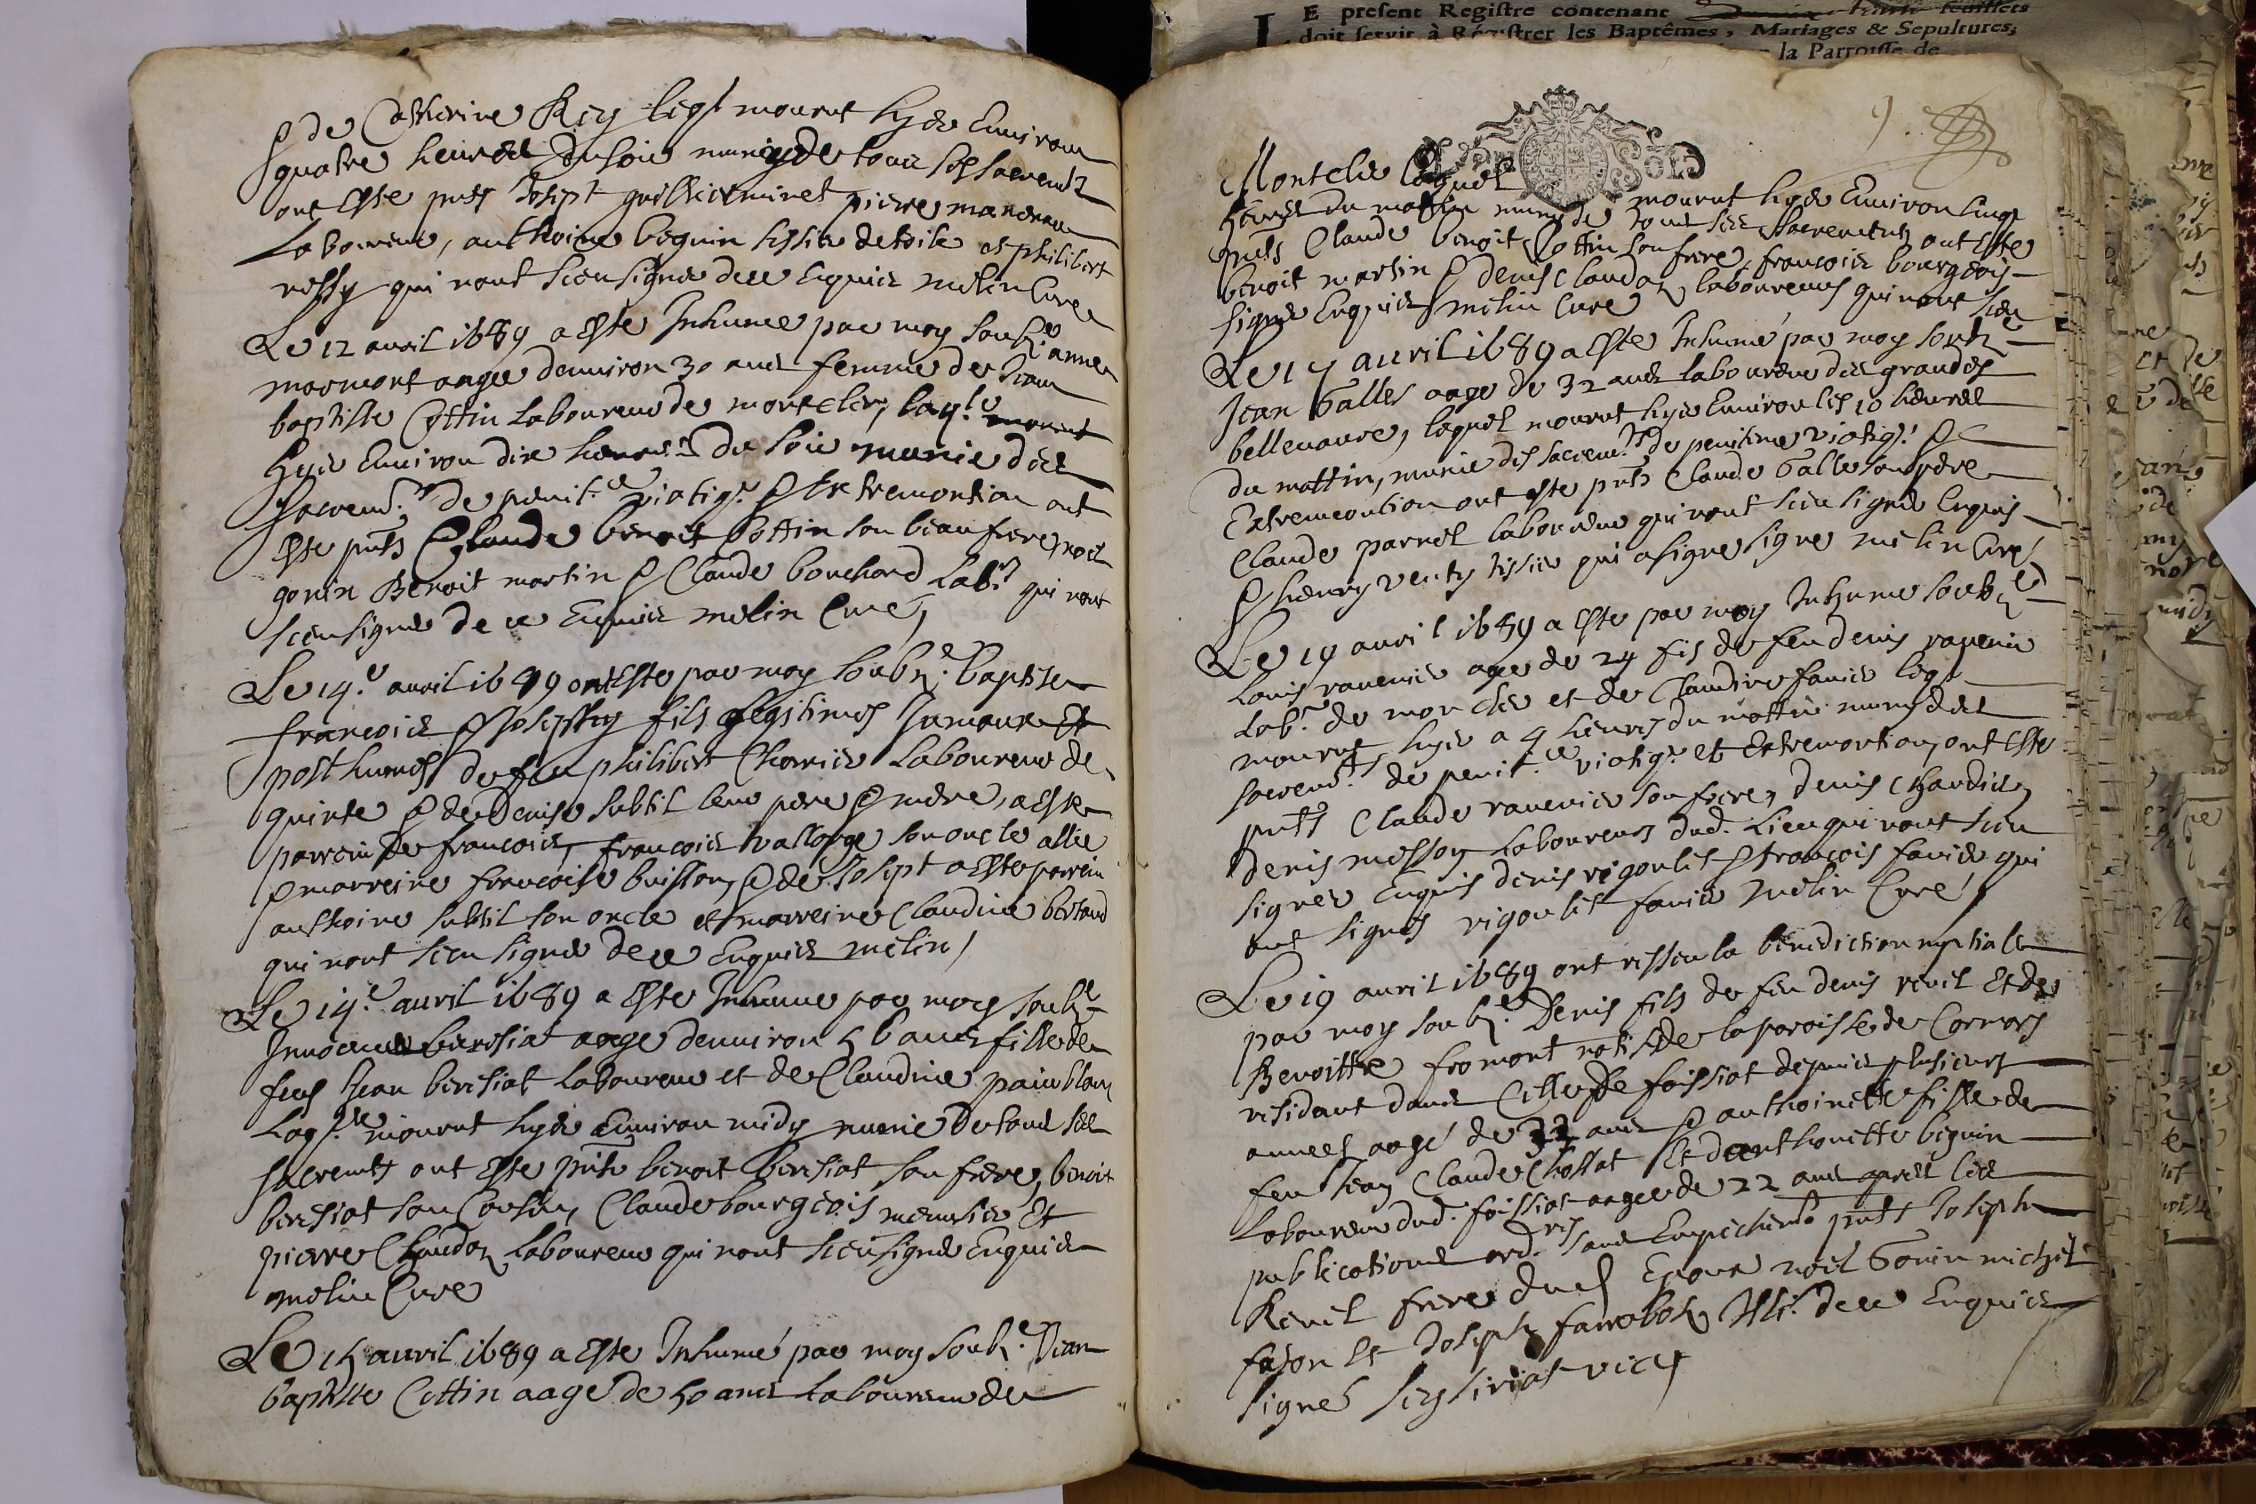 & de Catherine Rey leg.t mourut hyer Environ
quatre heures du soir muny de tous ses sacrem.ts
ont Esté pnts Josept guillieminet pierre mandrau
Laboureur, anthoine beguin tissier de toile et philibert
qui nont sceu signer de ce Enquis melin Curé
Le 12 avril 1689 a Esté Inhumée par moy soubz.é anne
mormont aagee denviron 30 ans femme de Jean
baptiste Cottin Laboureur de montclier, laq.le mourut
hyer Environ dix heures du soir munie des
sacrem.ts de penit.ce viatiq.e & Extremontion ont
Esté pnts Claude benoit Cottin son beau frere, noel
gonin Benoit martin & Claude bouchard Lab.rs qui nont
sceu signer de ce Enquis melin Curé,
Le 14.e avril 1689 ont Esté par moy soubz.é baptisez
francois & Josept fils legitimes Jumeaux Et
posthumes de feu philibert Charrier Laboureur de
quinte & de Denise subtil leur pere & mere, a Esté
parrein de francois, francois vallorge son oncle allié
& marreine francoise buisson, & de Josept a Esté parrein
anthoine subtil son oncle et marreine Claudine bertand
qui nont sceu signer de ce Enquis melin,
Le 14.e avril 1689 a Esté Inhumée par moy soubz.é
Innocente beresiat aage denviron 56 ans fille de
feus Jean beresiat Laboureur et de Claudine painblanc
Laq.le mourut hyer Environ midy munie de tous ses
sacremts ont Esté pnts benoit beresiat son frere, benoit
beresiat son Cousin, Claude bourgeois menusier Et
pierre Chaudon Laboureur qui nont sceu signer Enquis
melin Curé
Le 15 avril 1689 a Esté Inhumé par moy soubz.é Jean
baptiste Cottin aagé de 50 ans Laboureur de
LE present Registre contenant feüillets
doit servir à Régistrer les Baptêmes, Mariages & Sepultures,
la Parroisse de
9.
Montclier lequel mourut hyer Environ cinq
heures du mattin muny de tous ses sacrements ont Esté
pnts Claude benoit Cottin son frere, francois bourgeois
benoit martin & denis Claudon laboureurs qui nont sceu
signer Enquis melin Curé
Le 17 avril 1689 a Esté Inhumé par moy soubz.é
Jean Galles aage de 32 ans laboureur des grandes
bellevavre, lequel mourut hyer Environ les 10 heures
du mattin, munie des sacrem.ts de penitence viatiq.e &
Extremontion ont esté pnts Claude Galles son pere
Claude parnet laboureur qui nont sceu signer Enquis
& henry venty tissier qui a signe signe melin Curé
Le 19 avril 1689 a Esté par moy Inhumé soubz.é
Louis ravenier age de 24 fis de feu denis ravenir
Lab.r de monclier et de Claudine favier leg.t
mourut hyer a 4 heures du mattin muny des
sacrem.ts de penit.ce viatiq.e et Extremontion, ont Esté
pnts Claude ravenier son frere, denis Chardier,
denis messon Laboureurs dud. Lieu qui nont sceu
signer Enquis denis rigoulet & francois favier qui
ont signés rigoulet favier melin Curé
Le 19 avril 1689 ont ressu la benediction nuptiale
par moy soubz.é Denis fils de feu denis revel Et de
Benoitte fromont natif de la paroisse de Cormoz
residant dans Celle de foissiat depuis plusieurs
annees aagé de 33 ans & anthoinette fille de
feu Jean Claude Chossat Et danthoinette beguin
Laboureur dud. foissiat aagee de 22 ans apres les
publications ord.res sans Empechem.t pnts Joseph
Revel frere dud Epoux noel Gonin michel
fason Et Joseph farrabosq de ce Enquis
signé vic.e